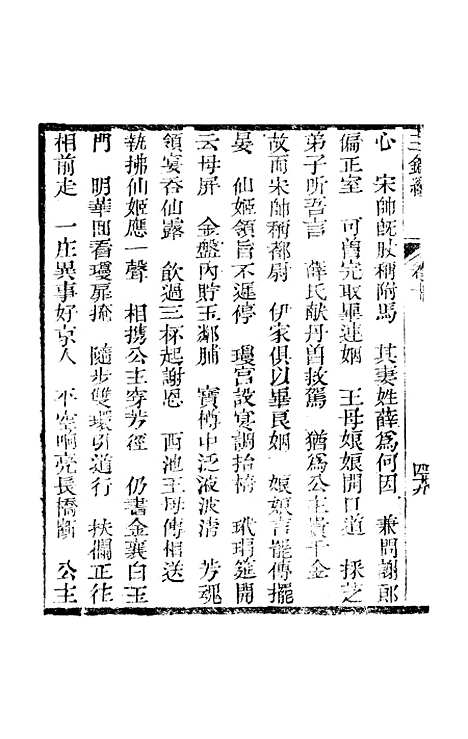 心　宋師旣肢稱附馬　其妻姓薛爲何因　兼問謝郎
偏正室　可曾完取畢連姻　王母娘娘開口道　採芝
弟子听吾言　薛氏献丹曾救駕　猶爲公主貴千金
故而朱師稱都尉　伊家俱以畢良姻　娘娘言罷傳擺
宴　仙姬領旨不遲停　瓊宮設宴調抬情　玳瑁筵開
云母屏　金盤內貯玉鄰脯　寶樽中泛液波清　芳魂
領宴吞仙露　飲過三杯起謝恩　西池王母傳相送
執拂仙姬應一聲　相携公主穿芳徑　仍書金襄白玉
門　明華囬看瓊扉掩　隨步雙環引道行　扶欄正往
相前走　一庄異事好京人　不空啊亮長橋斷　公主
三金緣
卷十
四十九